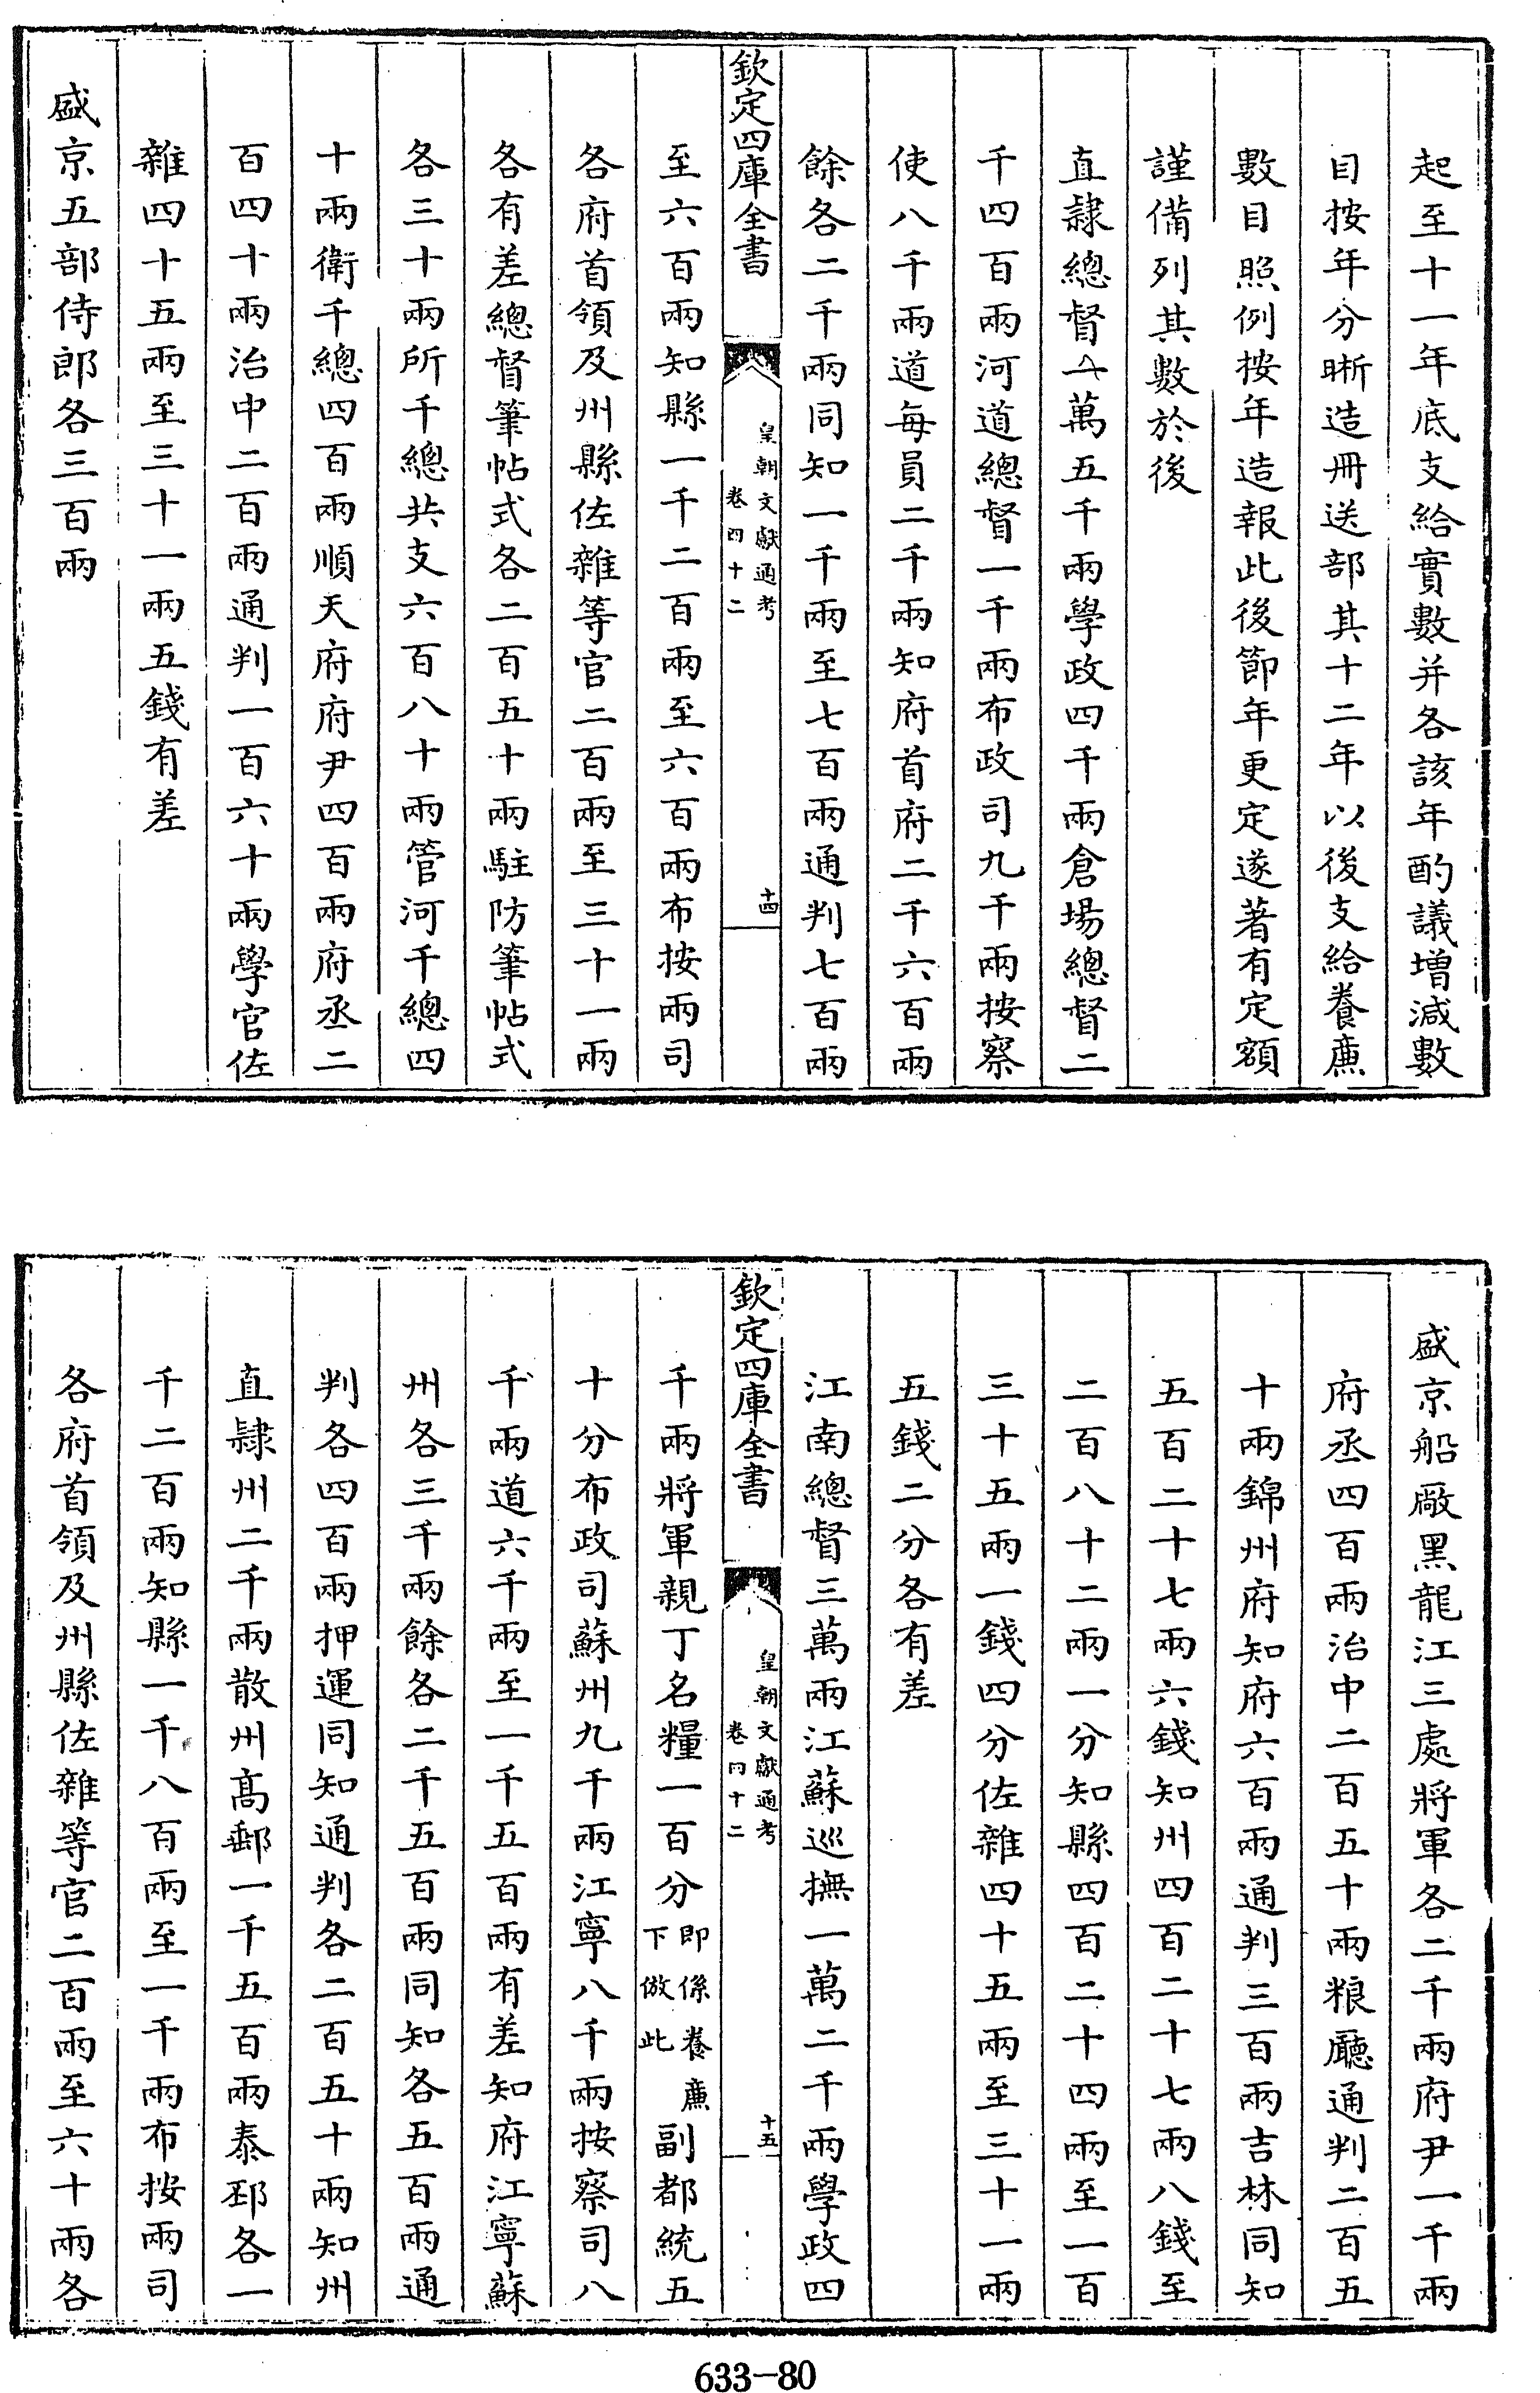 起至十一年底支給實數并各該年酌議增減數
目按年分晰造冊送部其十二年以後支給養廉
數目照例按年造報此後節年更定遂著有定額
謹備列其數於後
直隸總督一萬五千兩學政四千兩倉場總督二
千四百兩河道總督一千兩布政司九千兩按察
使八千兩道每員二千兩知府首府二千六百兩
餘各二千兩同知一千兩至七百兩通判七百兩
欽定四庫全書
皇朝文獻通考
卷四十二
十四
至六百兩知縣一千二百兩至六百兩布按兩司
各府首領及州縣佐雜等官二百兩至三十一兩
各有差總督筆帖式各二百五十兩駐防筆帖式
各三十兩所千總共支六百八十兩管河千總四
十兩衛千總四百兩順天府府尹四百兩府丞二
百四十兩治中二百兩通判一百六十兩學官佐
雜四十五兩至三十一兩五錢有差
盛京五部侍郎各三百兩
盛京船廠黑龍江三處將軍各二千兩府尹一千兩
府丞四百兩治中二百五十兩粮廳通判二百五
十兩錦州府知府六百兩通判三百兩吉林同知
五百二十七兩六錢知州四百二十七兩八錢至
二百八十二兩一分知縣四百二十四兩至一百
三十五兩一錢四分佐雜四十五兩至三十一兩
五錢二分各有差
江南總督三萬兩江蘇巡撫一萬二千兩學政四
欽定四庫全書
皇朝文獻通考
卷四十二
十五
千兩將軍親丁名糧一百分即係養廉下倣此副都統五
十分布政司蘇州九千兩江寧八千兩按察司八
千兩道六千兩至一千五百兩有差知府江寧蘇
州各三千兩餘各二千五百兩同知各五百兩通
判各四百兩押運同知通判各二百五十兩知州
直隸州二千兩散州高郵一千五百兩泰邳各一
千二百兩知縣一千八百兩至一千兩布按兩司
各府首領及州縣佐雜等官二百兩至六十兩各
633-80